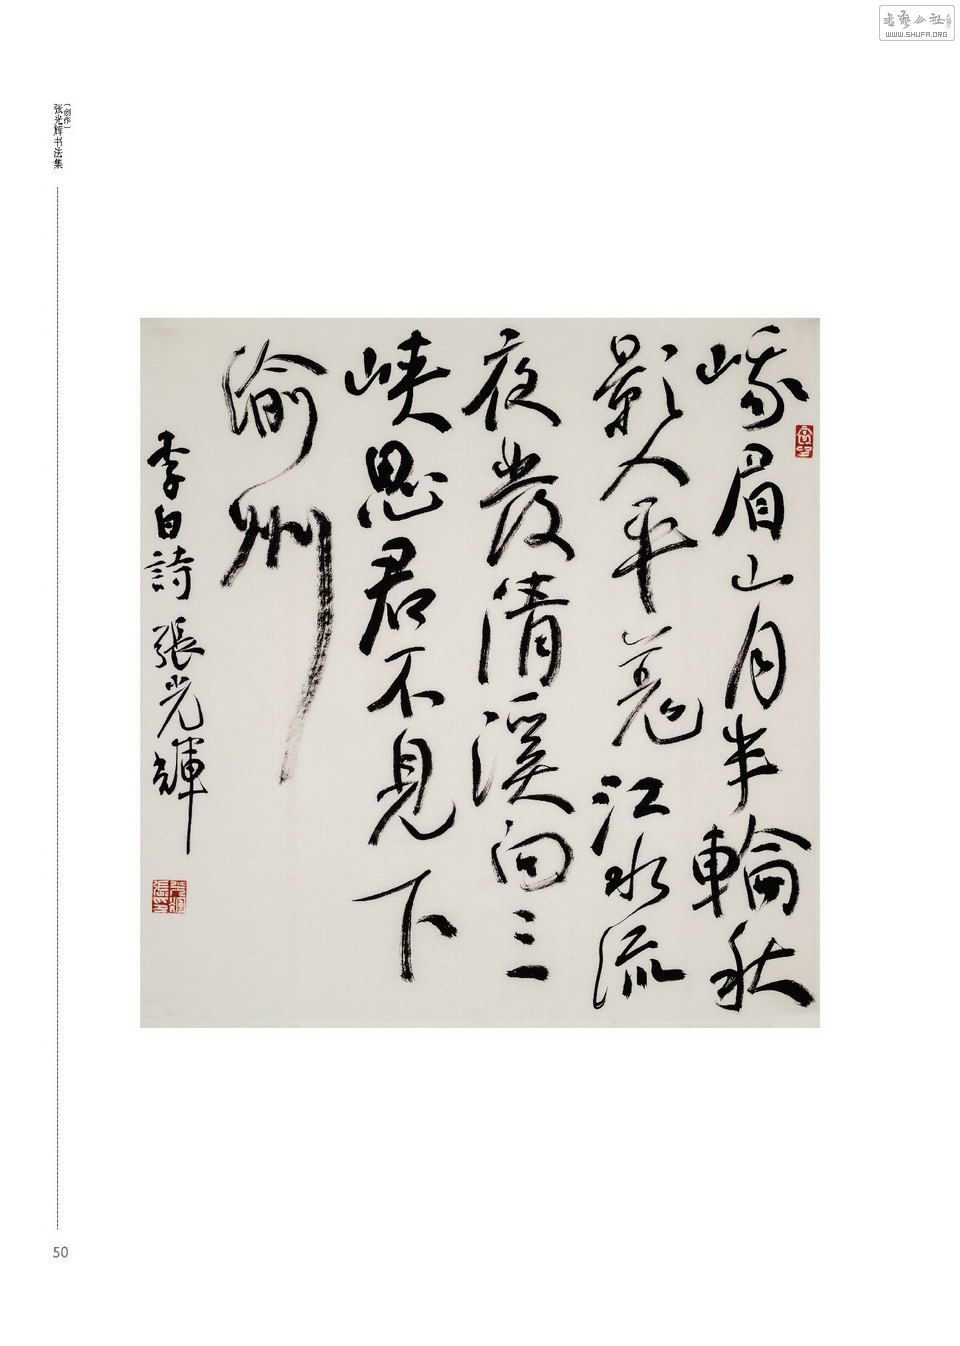 書藝公社
WWW.SHUFA.ORG
张光辉书法集
（创作）
峨眉山月半輪秋
影入平羌江水流
夜發清溪向三
峽思君不見下
渝州
李白詩 張光輝
50